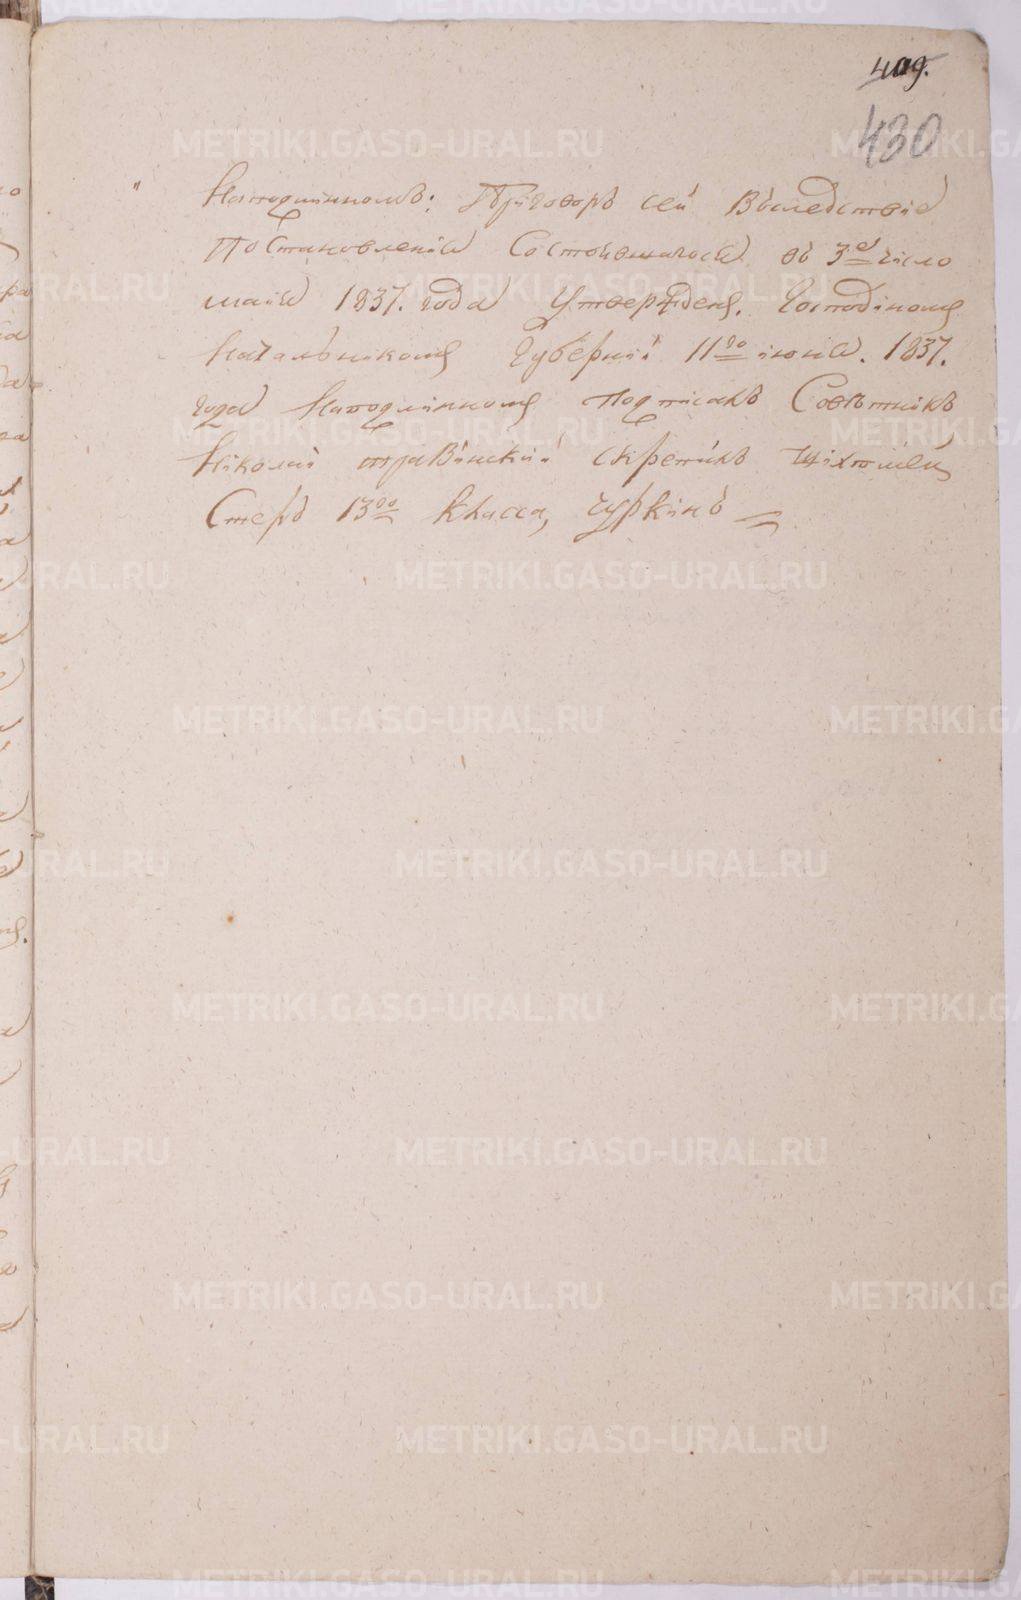 409.
430
" Наподлинномъ: Приговоръ сей Вследствіе
Постановленія Состоявшагося въ 3е число
маія 1837. года Утвержденъ. Господиномъ
Начальникомъ Губерніи 11го июня. 1837.
года Наподлинномъ Подписалъ Советникъ
Николай скрепилъ
Стеръ 13го Класса, Чуркинъ
METRIKI.GASO-URAL.RU